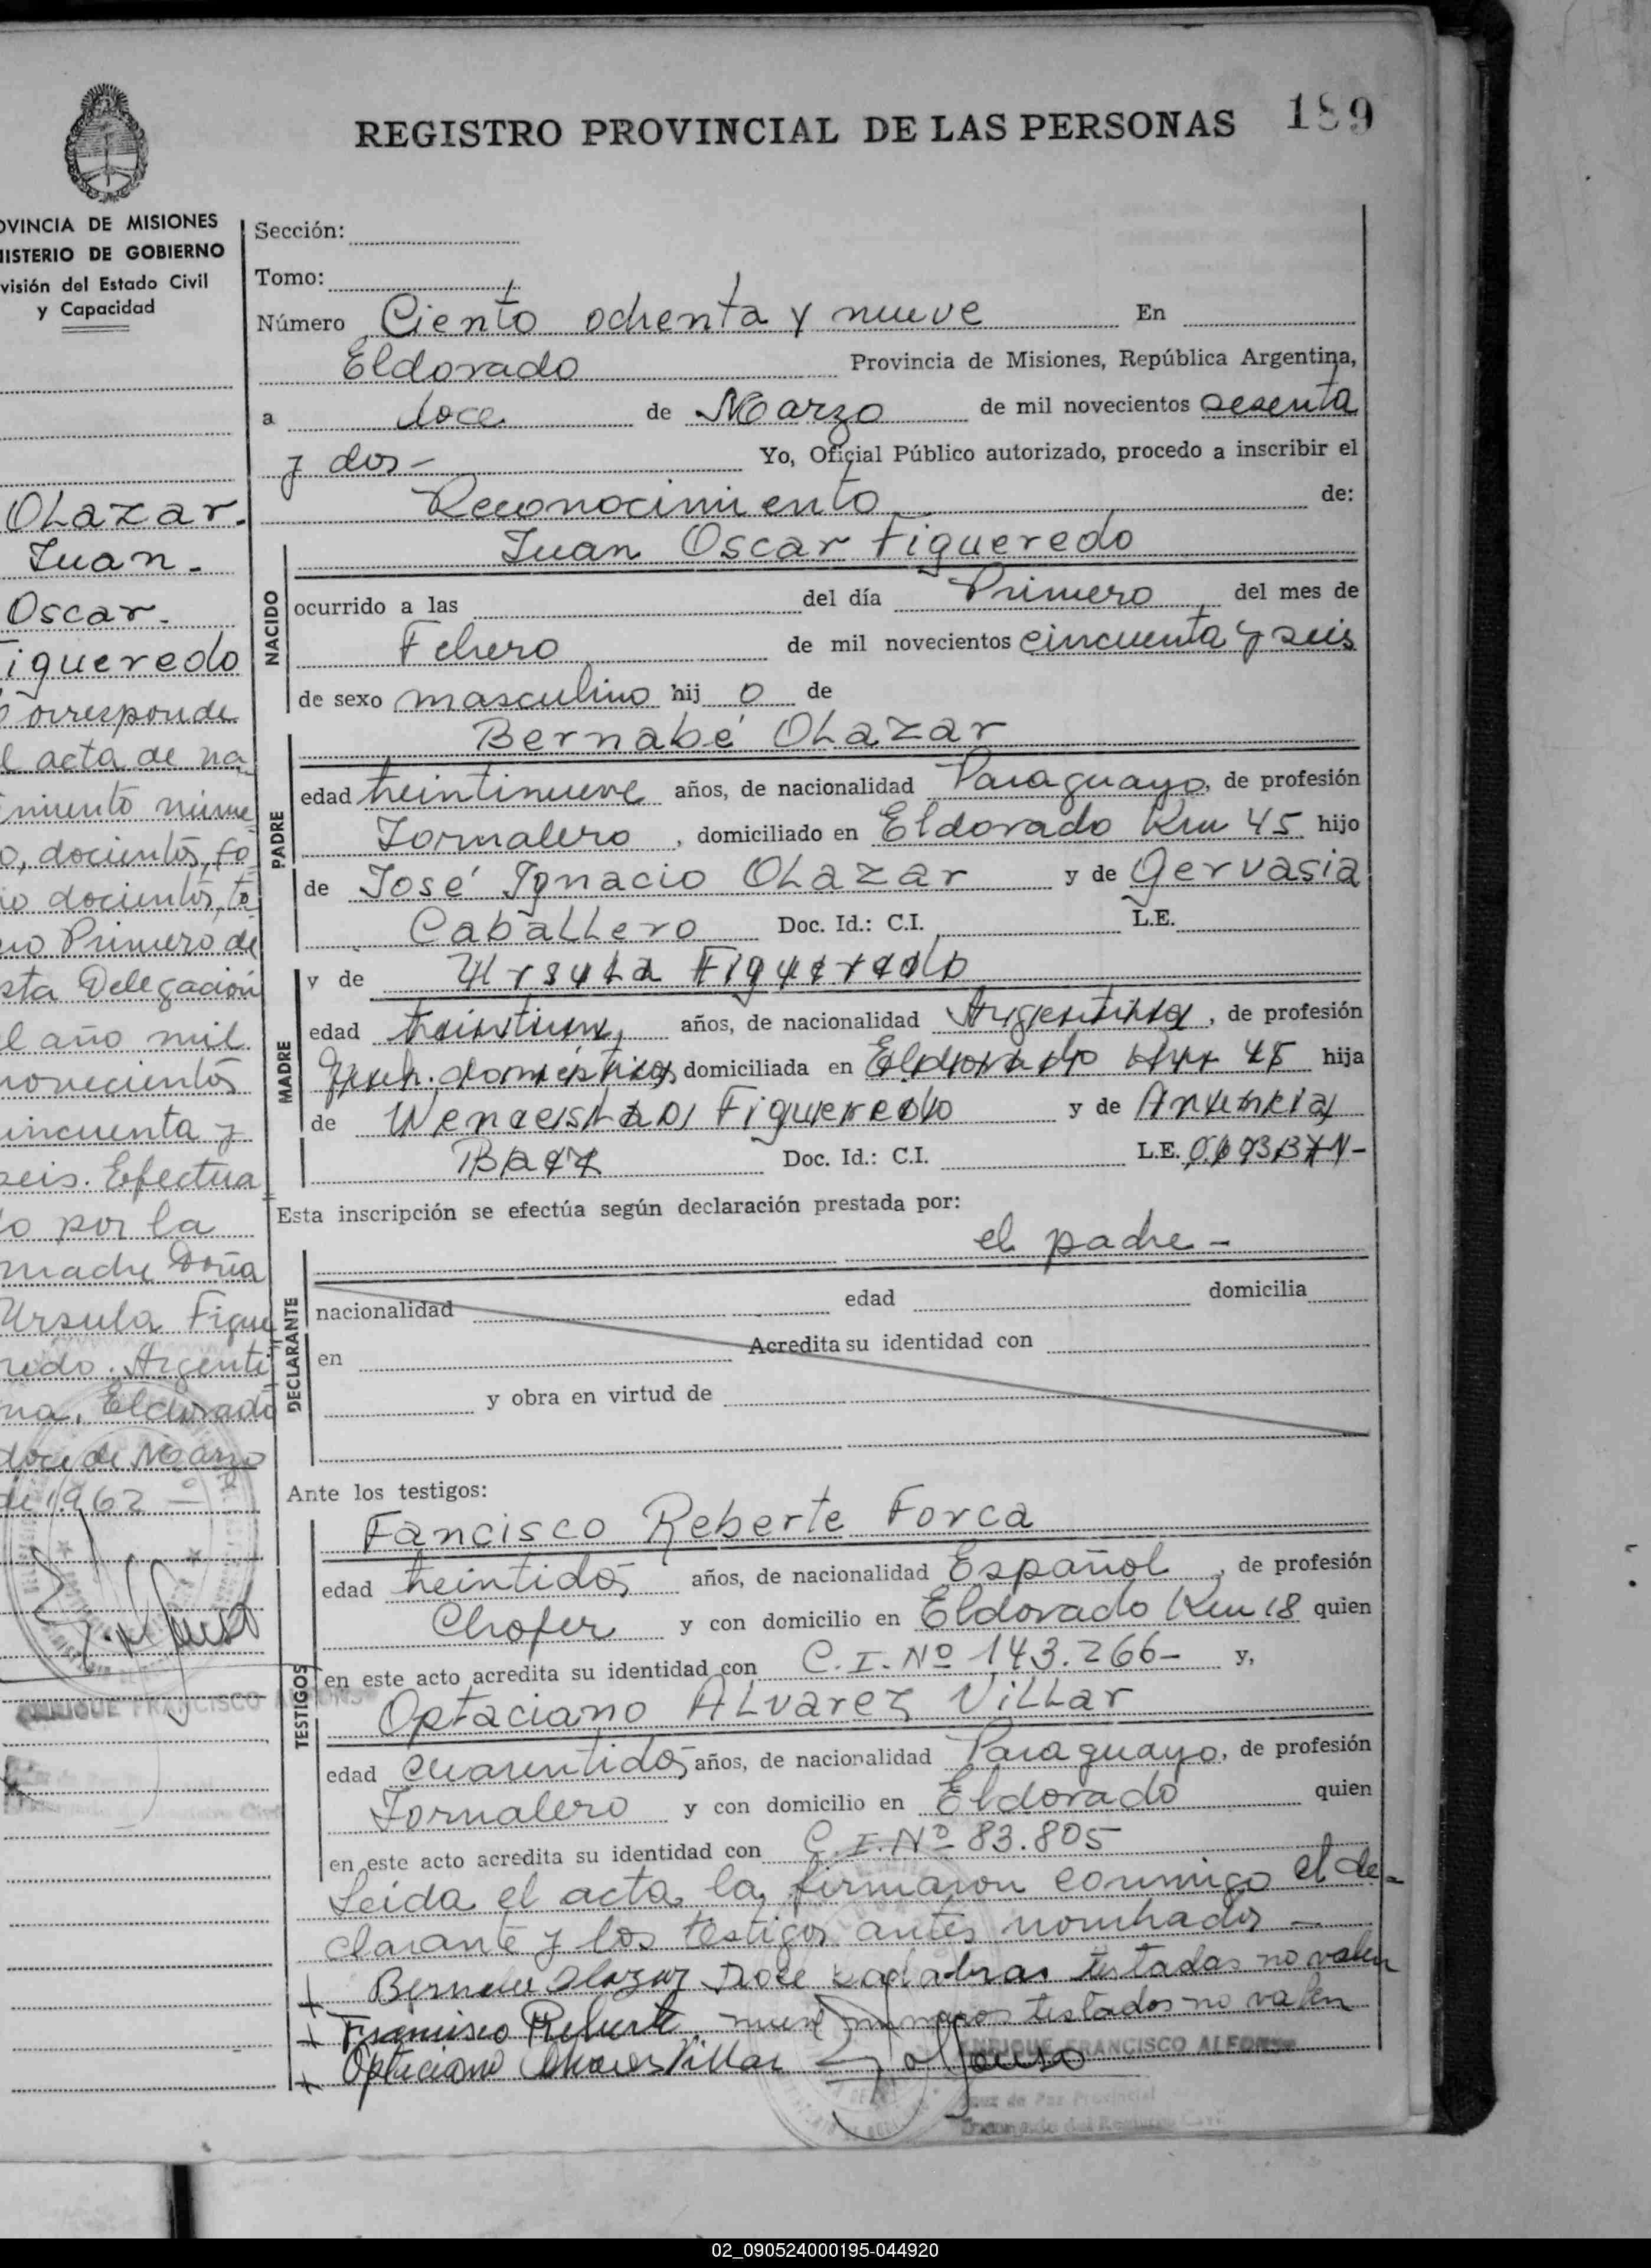 REGISTRO PROVINCIAL DE LAS PERSONAS 189
OVINCIA DE MISIONES
NISTERIO DE GOBIERNO
visión del Estado Civil
y Capacidad
OLazar.
Juan.
Oscar.
igueredo
Corresponde
l acta de na
imiento núme
o, docientos, fo
io docientos, to
mo Primero de
sta Delegación
el año mil
novecientos
incuenta y
seis. Efectua
do por la
madre Doña
Ursula Figue
redo. Argenti
na, Eldorado
doce de Marzo
de 1962
ENRIQUE FRANCISCO ALFONSO
Sección:
Tomo:
Número Ciento ochenta y nueve En
Eldorado Provincia de Misiones, República Argentina,
a doce de Marzo de mil novecientos sesenta
y dos - Yo, Oficial Público autorizado, procedo a inscribir el
Reconocimiento de:
NACIDO
Juan Oscar Figueredo
ocurrido a las del día Primero del mes de
Febrero de mil novecientos cincuenta y seis
de sexo masculino hij o de
PADRE
Bernabé OLazar
edad treintinueve años, de nacionalidad Paraguayo, de profesión
Jornalero, domiciliado en Eldorado Km 45 hijo
de José Ignacio OLazar y de Gervasia
CabaLLero Doc. Id.: C.I. L.E.
MADRE
y de Ursula Figueredo
edad treintiun, años, de nacionalidad Argentina, de profesión
domésticos domiciliada en Eldorado Km 45 hija
de Wenceslao Figueredo y de
Baez Doc. Id.: C.I. L.E.
Esta inscripción se efectúa según declaración prestada por:
el padre -
DECLARANTE
nacionalidad edad domicilia
en Acredita su identidad con
y obra en virtud de
Ante los testigos:
TESTIGOS
Fancisco Reberte Forca
edad treintidós años, de nacionalidad Español, de profesión
Chofer y con domicilio en Eldorado Km 18 quien
en este acto acredita su identidad con C.I. Nº 143.266- y,
Optaciano ALvarez ViLLar
edad cuarentidós años, de nacionalidad Paraguayo, de profesión
Jornalero y con domicilio en Eldorado quien
en este acto acredita su identidad con C.I. Nº 83.805
Leida el acta, la firmaron conmigo el de-
clarante y los testigos antes nombrados -
Olazar Doce palabras testadas no valen
Francisco Reberte nueve números testados no valen
Optaciano Alvares Villar
ENRIQUE FRANCISCO ALFONSO
Juez de Paz Provincial
Encargado del Registro Civil
02_090524000195-044920